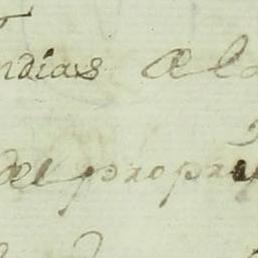 Indias a la
del propri